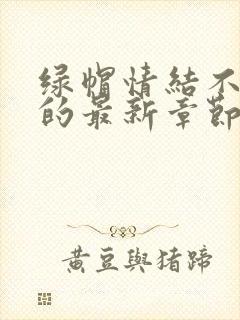 绿帽情結不
的最新章節
黃豆與猪蹄